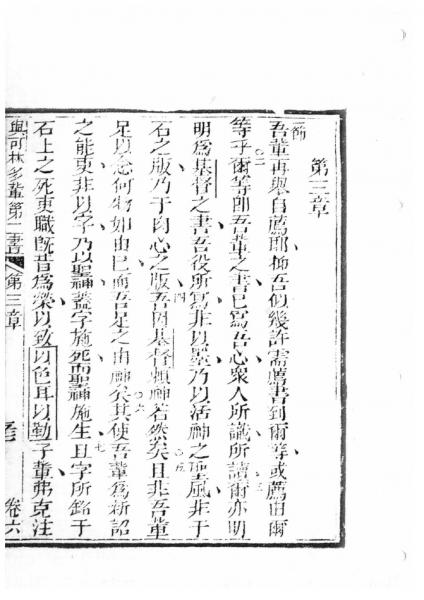 第三章
節
吾輩再舉自薦耶抑吾似幾許需薦書到爾等或薦由爾
等乎爾等卽吾輩之書已寫吾心衆人所識所讀爾亦明
明爲基督之書吾役所寫非以墨乃以活神之聖風非于
石之版乃于肉心之版吾因基督賴神若然矣且非吾輩
足以念何物如由己而吾足之由神矣其使吾輩爲新詔
之能吏非以字乃以聖神蓋字施死而聖神施生且字所銘于
石上之死吏職旣昔爲榮以致以色耳以勒子輩弗克注
與可林多輩第二書 第三章 卷六